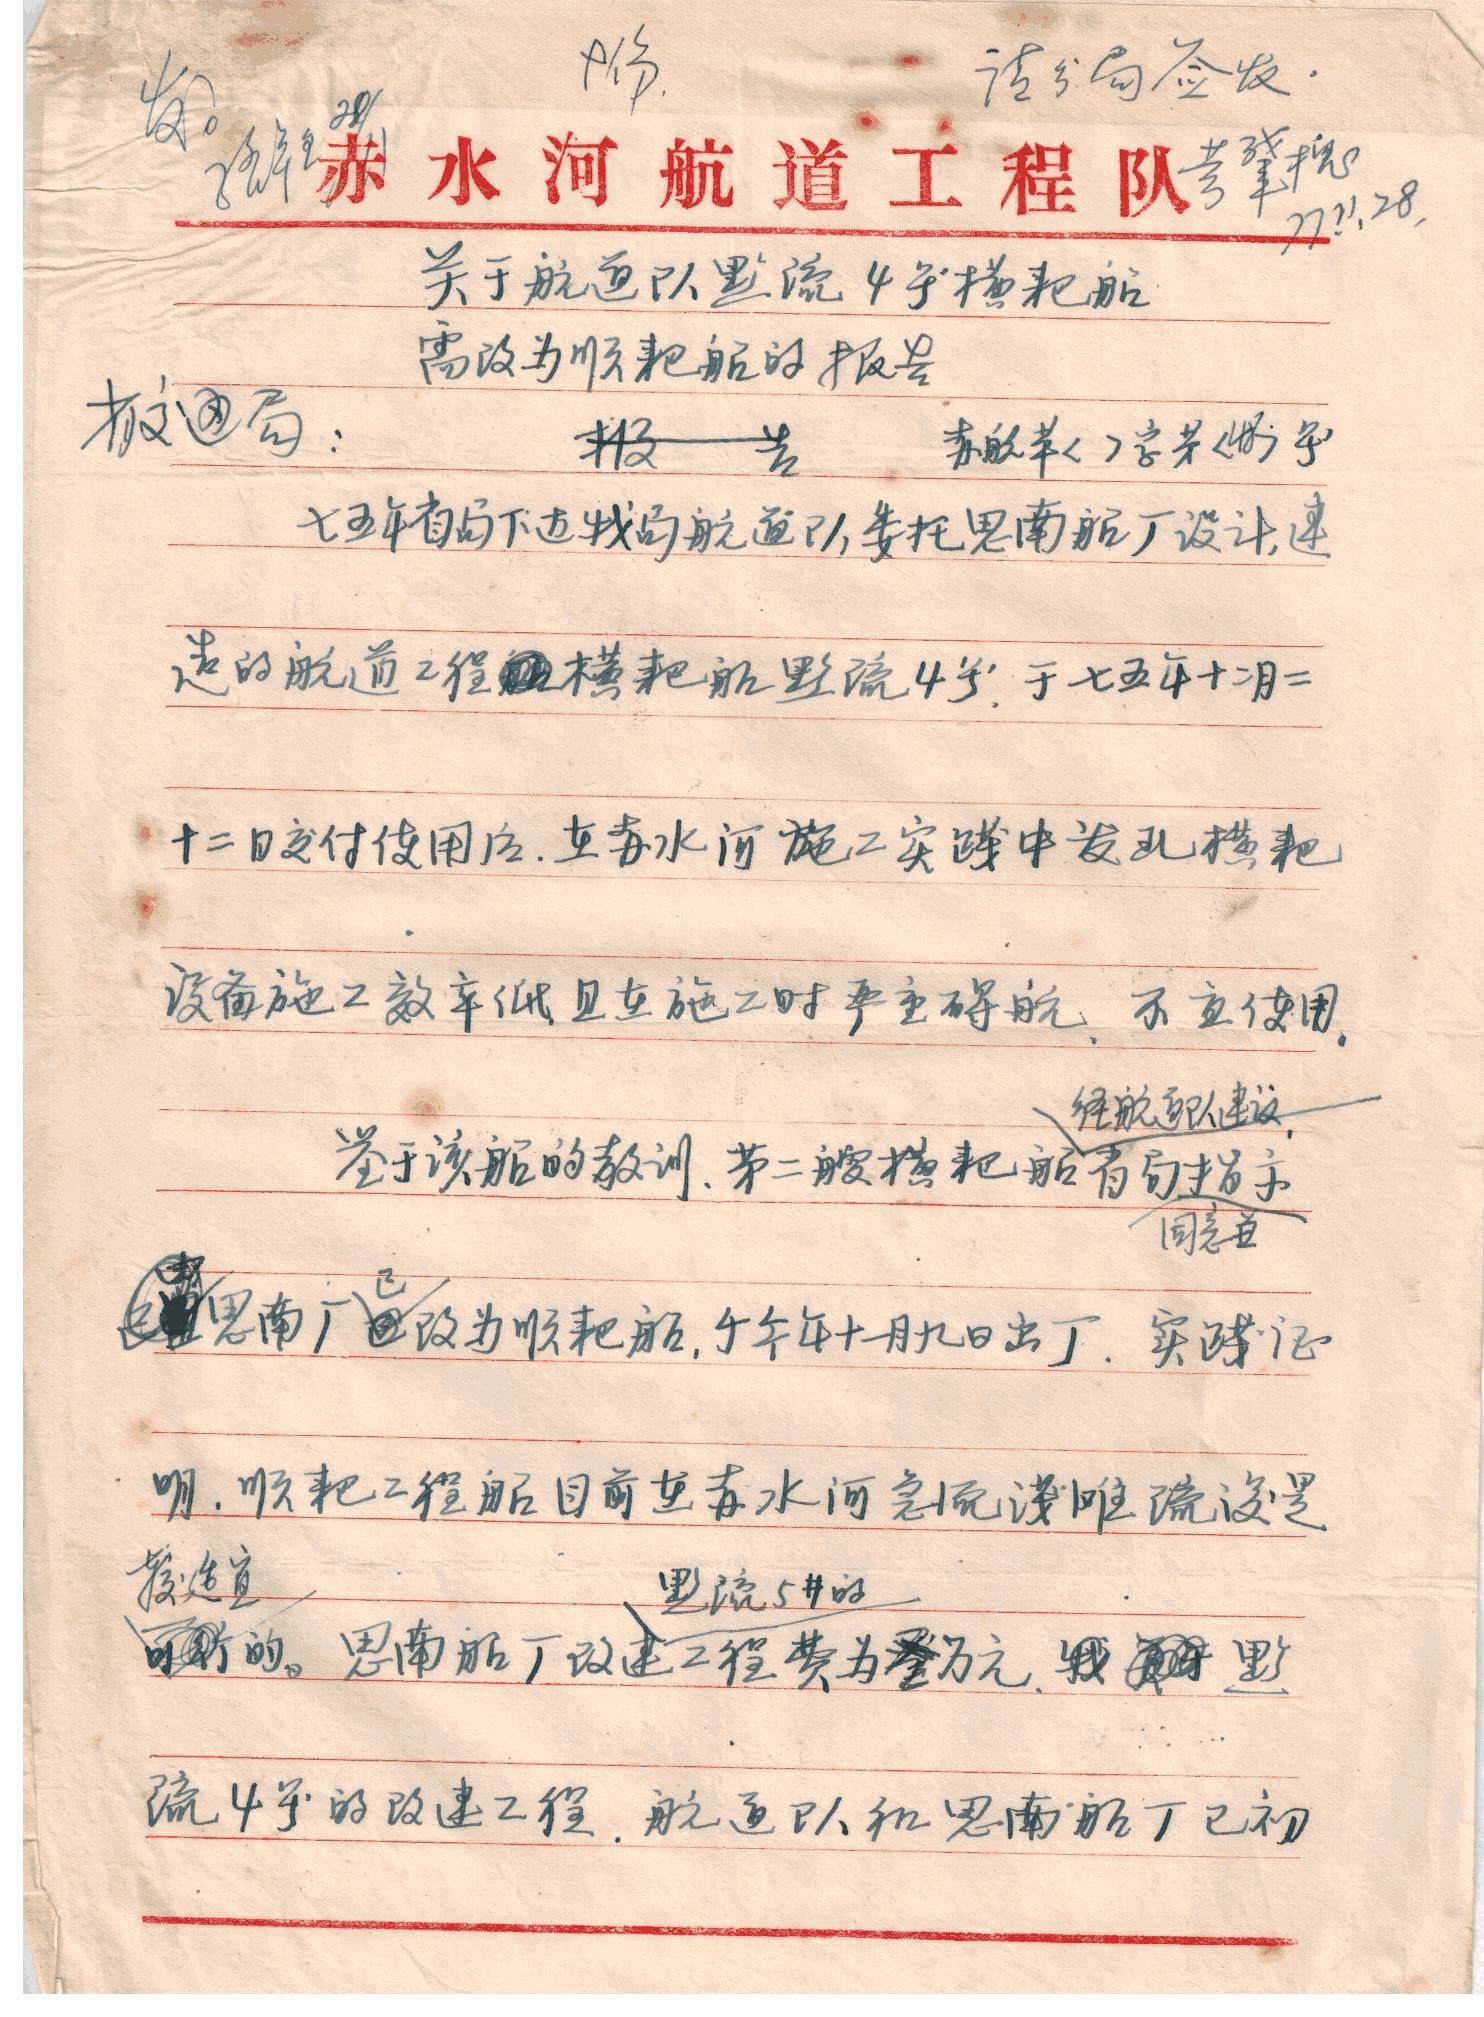 发。
请分局签发.
赤水河航道工程队
77.11.28.
关于航道队黔流4号横耙船
需改为顺耙船的报告
交通局:
报告 赤航革〈 〉字第〈 〉号
七五年省局下达我局航道队委托思南船厂设计、建
造的航道工程横耙船黔流4号.于七五年十二月二
十二日交付使用后.在赤水河施工实践中发现横耙
设备施工效率低且在施工时严重碍航、不宜使用.
经航道队建议,
鉴于该船的教训、第二艘横耙船省局指示
同意并
已
思南厂改为顺耙船,于今年十一月九日出厂.实践证
明.顺耙工程船目前在赤水河急流浅滩疏浚是
较适宜
黔流5#的
的。思南船厂改建工程费为万元.黔
流4号的改建工程.航道队和思南船厂已初